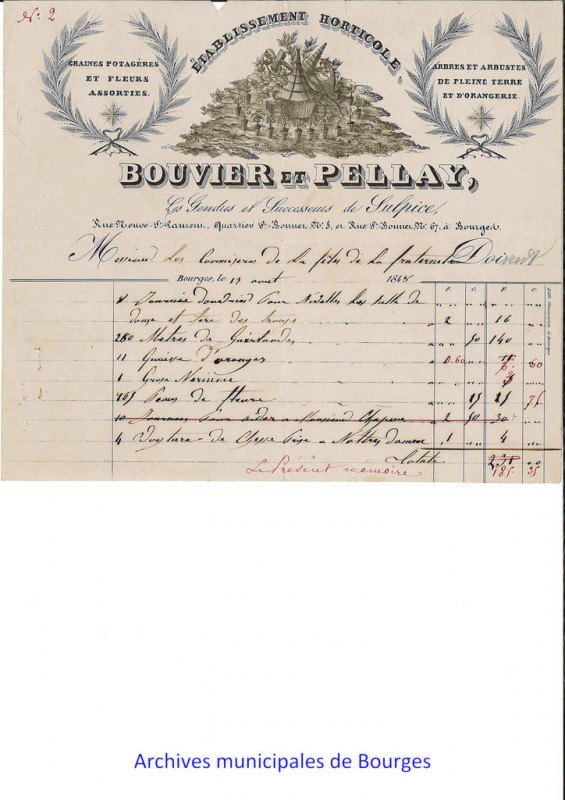 N.º 2
ÉTABLISSEMENT HORTICOLE
GRAINES POTAGÈRES
ET FLEURS
ASSORTIES.
ARBRES ET ARBUSTES
DE PLEINE TERRE
ET D'ORANGERIE.
BOUVIER ET PELLAY,
Les Gendres et Successeurs de Sulpice,
Rue Neuve St Laurent, Quartier St Bonnet, N.º 5, et Rue St Bonnet, N.º 67, à Bourges.
Messieurs Les Commissaires de La fêtes de La fraternité Doivent
Bourges, le 13 aout 1848
F. C. F. C.
8 Journée pour les salle de
danse et 2 16
280 Metres de Guirlandes 50 140
11 Quaisse d'oranges 0.60 6 60
1 Grosse
105 Peaux de fleurs 25 75
10 Journees pour aider a Monsieur 2 50 30
4 Voyture de a Nottre damme 1 4
Totale 231
Le Présent mémoire 185 35
Archives municipales de Bourges